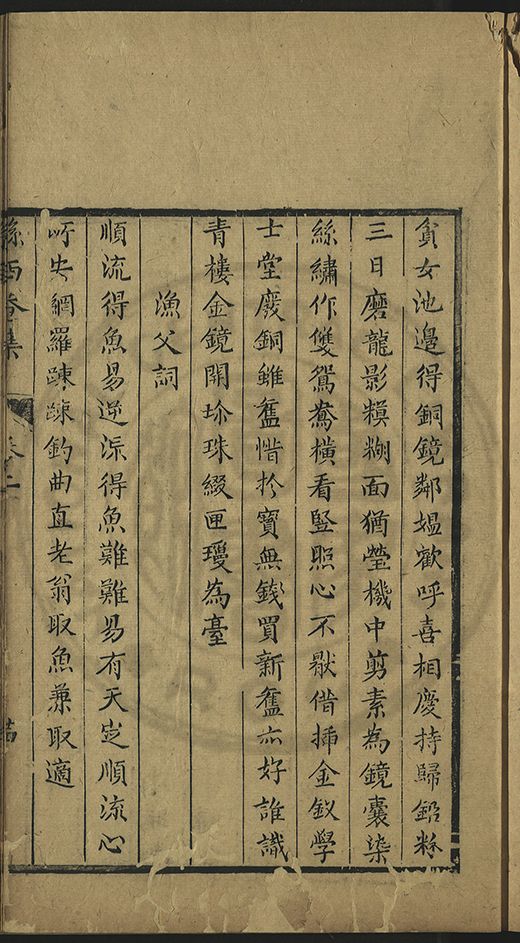 貧女池邊得銅鏡鄰媼歡呼喜相慶持歸鉛粉
三日磨龍影糢糊面猶瑩機中剪素為鏡囊染
絲繡作雙鴛鴦橫看豎照心不厭借插金釵學
士堂廢銅雖舊惜於寶無錢買新舊亦好誰識
青樓金鏡開珍珠綴匣瓊為臺
漁父詞
順流得魚易逆流得魚難難易有天定順流心
何失網羅踈踈釣曲直老翁取魚兼取適
西菴集
卷二